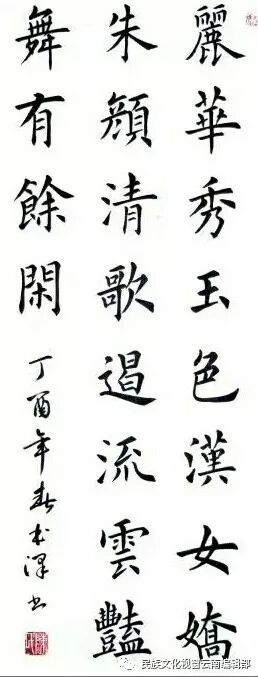 麗華秀玉色漢女嬌
朱顔清歌遏流雲豔
舞有餘閑
丁酉年春 書
民族文化视窗云南编辑部